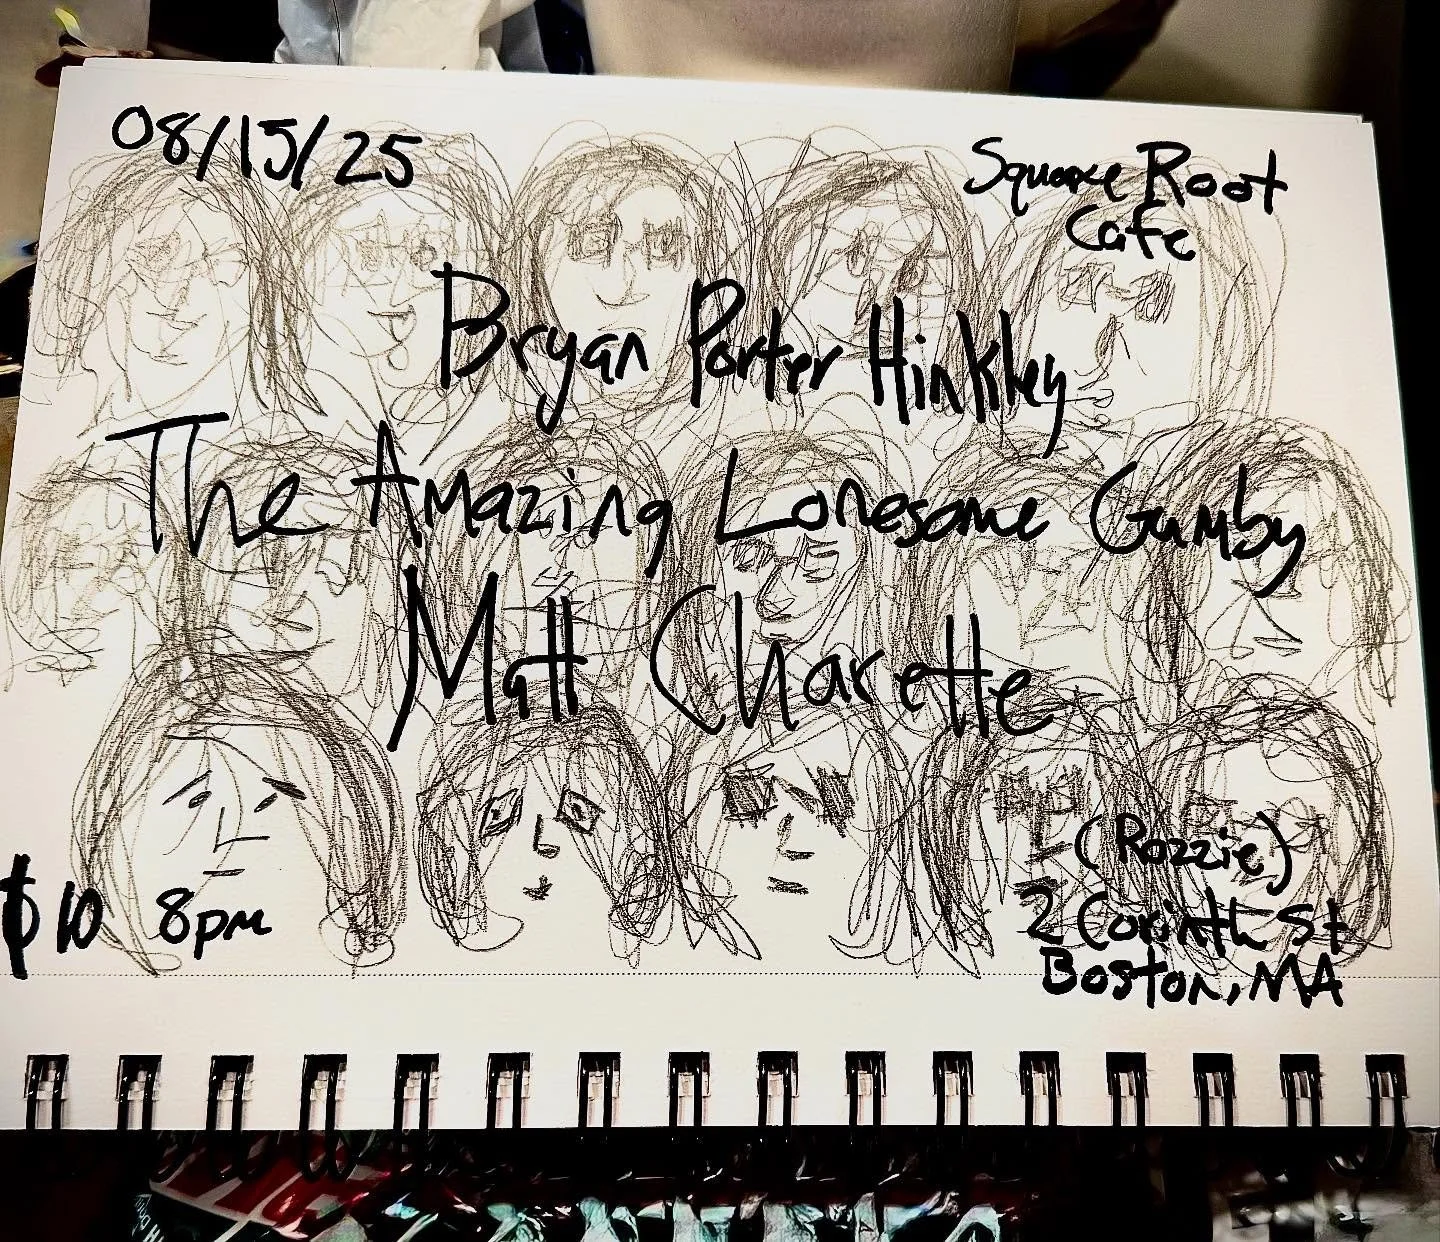 08/15/25
Square Root
Cafe
Bryan Porter Hinkley
The Amazing Lonesome Gumby
Matt Charette
(Rozzie)
$10 8pm
2 Corinth St
Boston, MA